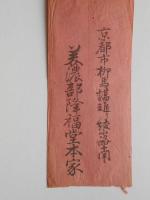 京都市柳馬場通綾小路南
美濃部隆福堂本家